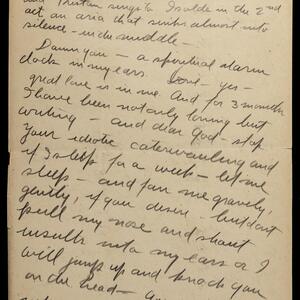 and Tristan sings to Isolde in the 2nd
act an aria that sinks almost into
silence - in the middle -
Damn you - a spiritual alarm
clock in my ears. Love - yes -
great love is in me. And for 3 months
I have been not only loving but
working - and dear God - stop
your idiotic caterwauling and
if I sleep for a week - let me
sleep - and fan me gravely,
gently, if you desire - but don't
pull my nose and shout
insults into my ears or I
will jump up and knock you
on the head -